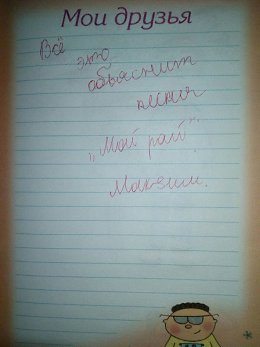 Мои друзья
Всё
это
объяснит
песня
„Мой рай“.
Максим.